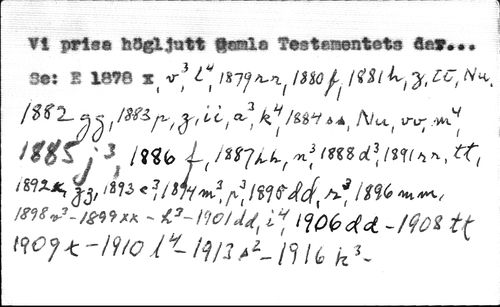 Vi prisa högljutt Gamla Testamentets dar...
Se: E 1878 x, v³, l⁴, 1879 rr, 1880 f, 1881 h, z, tt, Nu,
1882 gg, 1883 p, z, ii, a³, k⁴, 1884 ss, Nu, vv, m⁴,
1885 j³, 1886 f, 1887 hh, n³, 1888 d³, 1891 rr, tt,
1892 x, zz, 1893 e³, 1894 m³, p³, 1895 dd, r³, 1896 mm,
1898 v³ - 1899 xx - h³ - 1901 dd, i⁴, 1906 dd - 1908 tt
1909 t - 1910 l⁴ - 1913 s² - 1916 k³ -